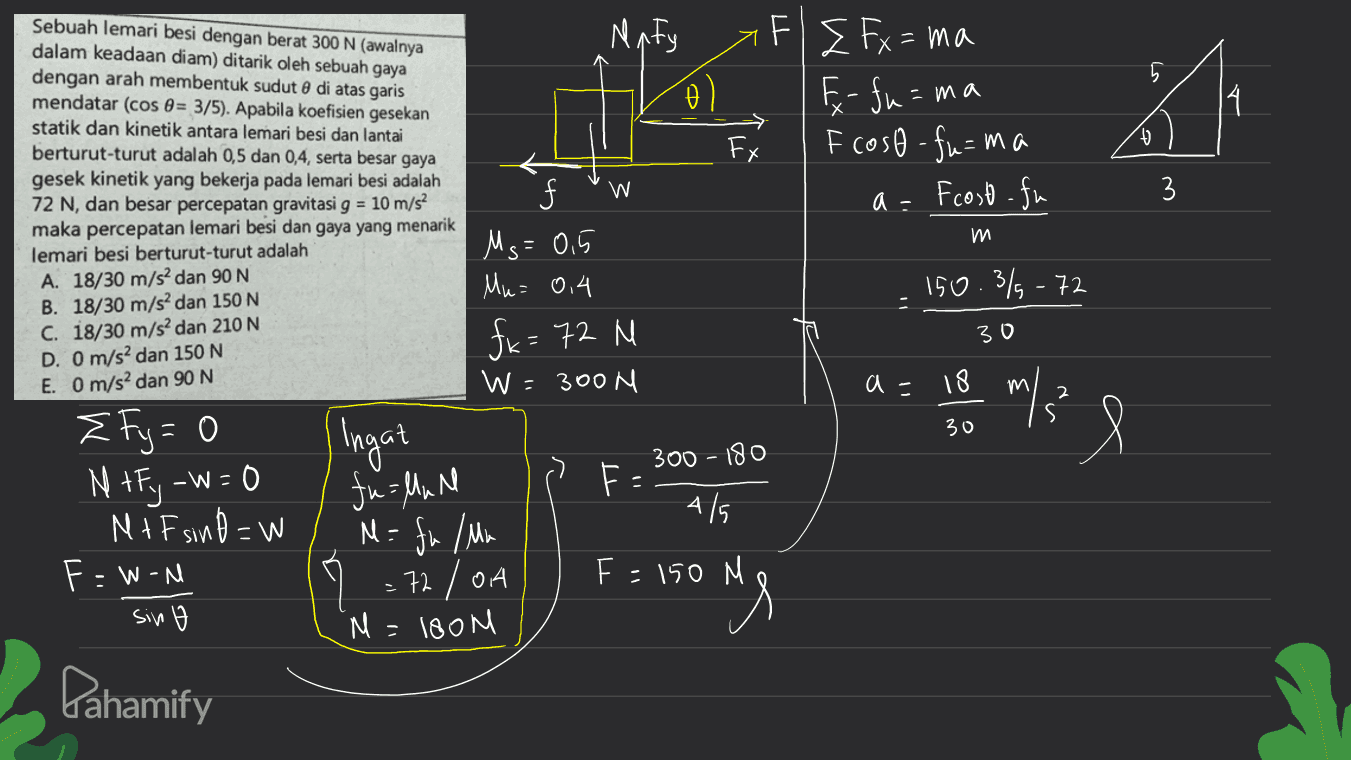 Sebuah lemari besi dengan berat 300 N (awalnya
dalam keadaan diam) ditarik oleh sebuah gaya
dengan arah membentuk sudut θ di atas garis
mendatar (cos θ= 3/5). Apabila koefisien gesekan
statik dan kinetik antara lemari besi dan lantai
berturut-turut adalah 0,5 dan 0,4, serta besar gaya
gesek kinetik yang bekerja pada lemari besi adalah
72 N, dan besar percepatan gravitasi g = 10 m/s²
maka percepatan lemari besi dan gaya yang menarik
lemari besi berturut-turut adalah
A. 18/30 m/s² dan 90 N
B. 18/30 m/s² dan 150 N
C. 18/30 m/s² dan 210 N
D. 0 m/s² dan 150 N
E. 0 m/s² dan 90 N
N Fy F
θ
Fx
f W
μs = 0,5
μk = 0,4
fk = 72 N
W = 300 N
Σ Fx = ma
Fx - fk = ma
F cos θ - fk = ma
a = F cos θ - fk
m
= 150 . 3/5 - 72
30
a = 18 m/s²
30
5
4
θ
3
Σ Fy = 0
N + Fy - W = 0
N + F sin θ = W
F = W - N
sin θ
Ingat
fk = μk N
N = fk / μk
= 72 / 0,4
N = 180 N
F = 300 - 180
4/5
F = 150 N
Pahamify